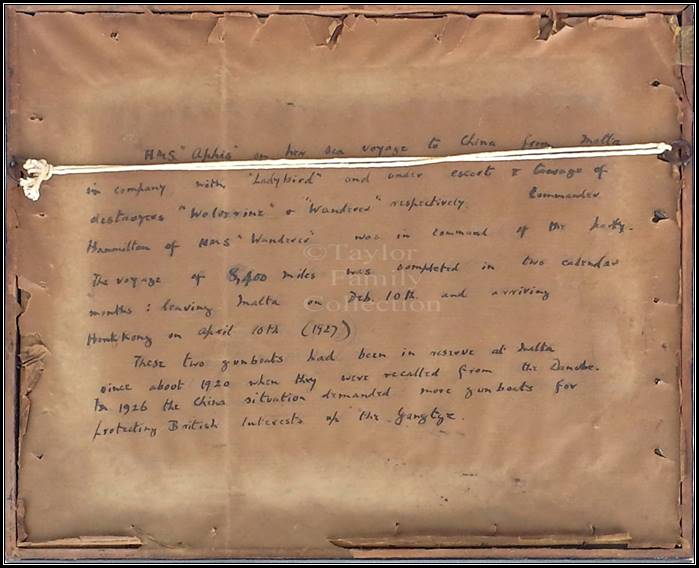 HMS "Aphis" on her sea voyage to China from Malta
in company with "Ladybird" and under escort & towage of
destroyers "Wolverine" & "Wanderer" respectively. Commander
Hammilton of HMS "Wanderer" was in command of the party.
The voyage of 8,400 miles was completed in two calendar
months: leaving Malta on Feb. 10th. and arriving
HonkKong on April 10th (1927)
These two gunboats had been in reserve at Malta
since about 1920 when they were recalled from the Danube.
In 1926 the China situation demanded more gunboats for
protecting British Interests up the Yangtze.
©Taylor
Family
Collection